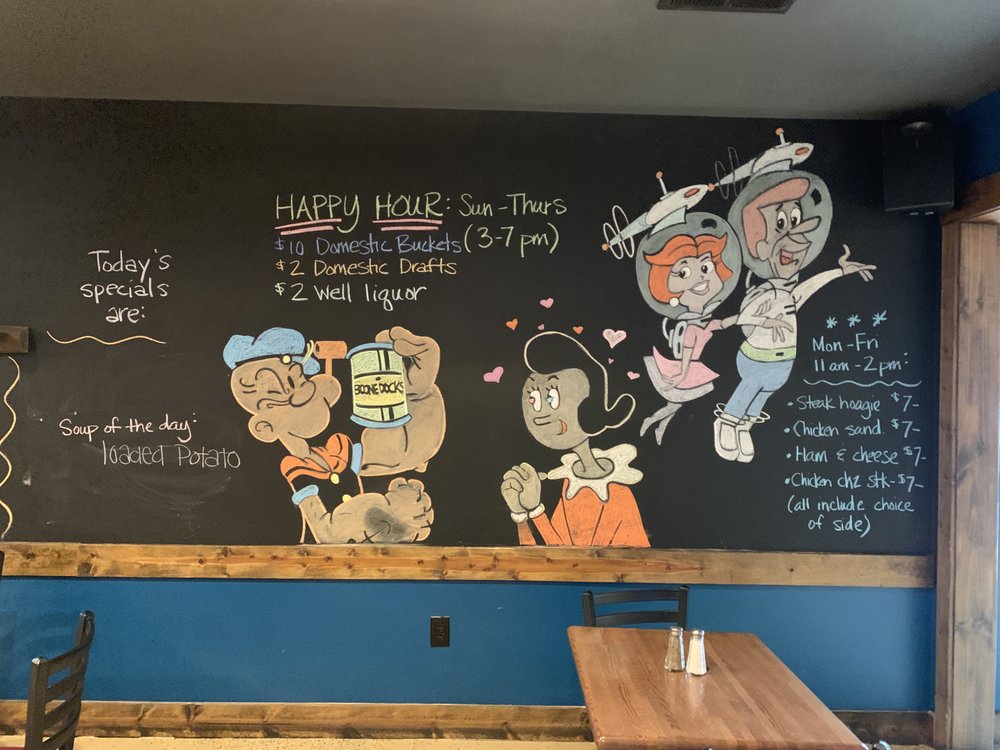 Today's
specials
are:
"Soup of the day"
loaded Potato
HAPPY HOUR: Sun-Thurs
$10 Domestic Buckets (3-7pm)
$2 Domestic Drafts
$2 Well liquor
BOONE DOCKS
* * *
Mon-Fri
11am-2pm:
• Steak hoagie $7-
• Chicken sand. $7-
• Ham & cheese $7-
• Chicken chz stk-$7-
(all include choice
of side)